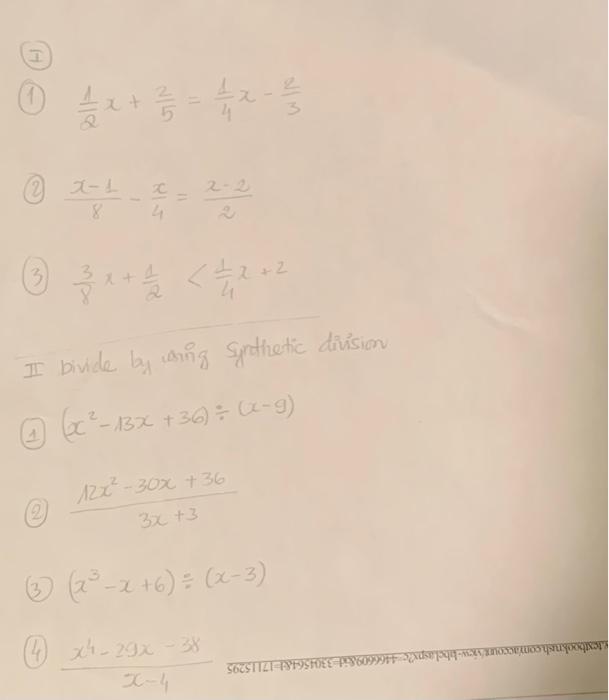 I
1 1/2 x + 2/5 = 1/4 x - 2/3
2 x-1/8 - x/4 = x-2/2
3 3/8 x + 1/2 < 1/4 x + 2
II Divide by using synthetic division
1 (x² - 13x + 36) ÷ (x-9)
2 12x² - 30x + 36 / 3x + 3
3 (x³ - x + 6) ÷ (x-3)
4 x⁴ - 29x - 38 / x-4